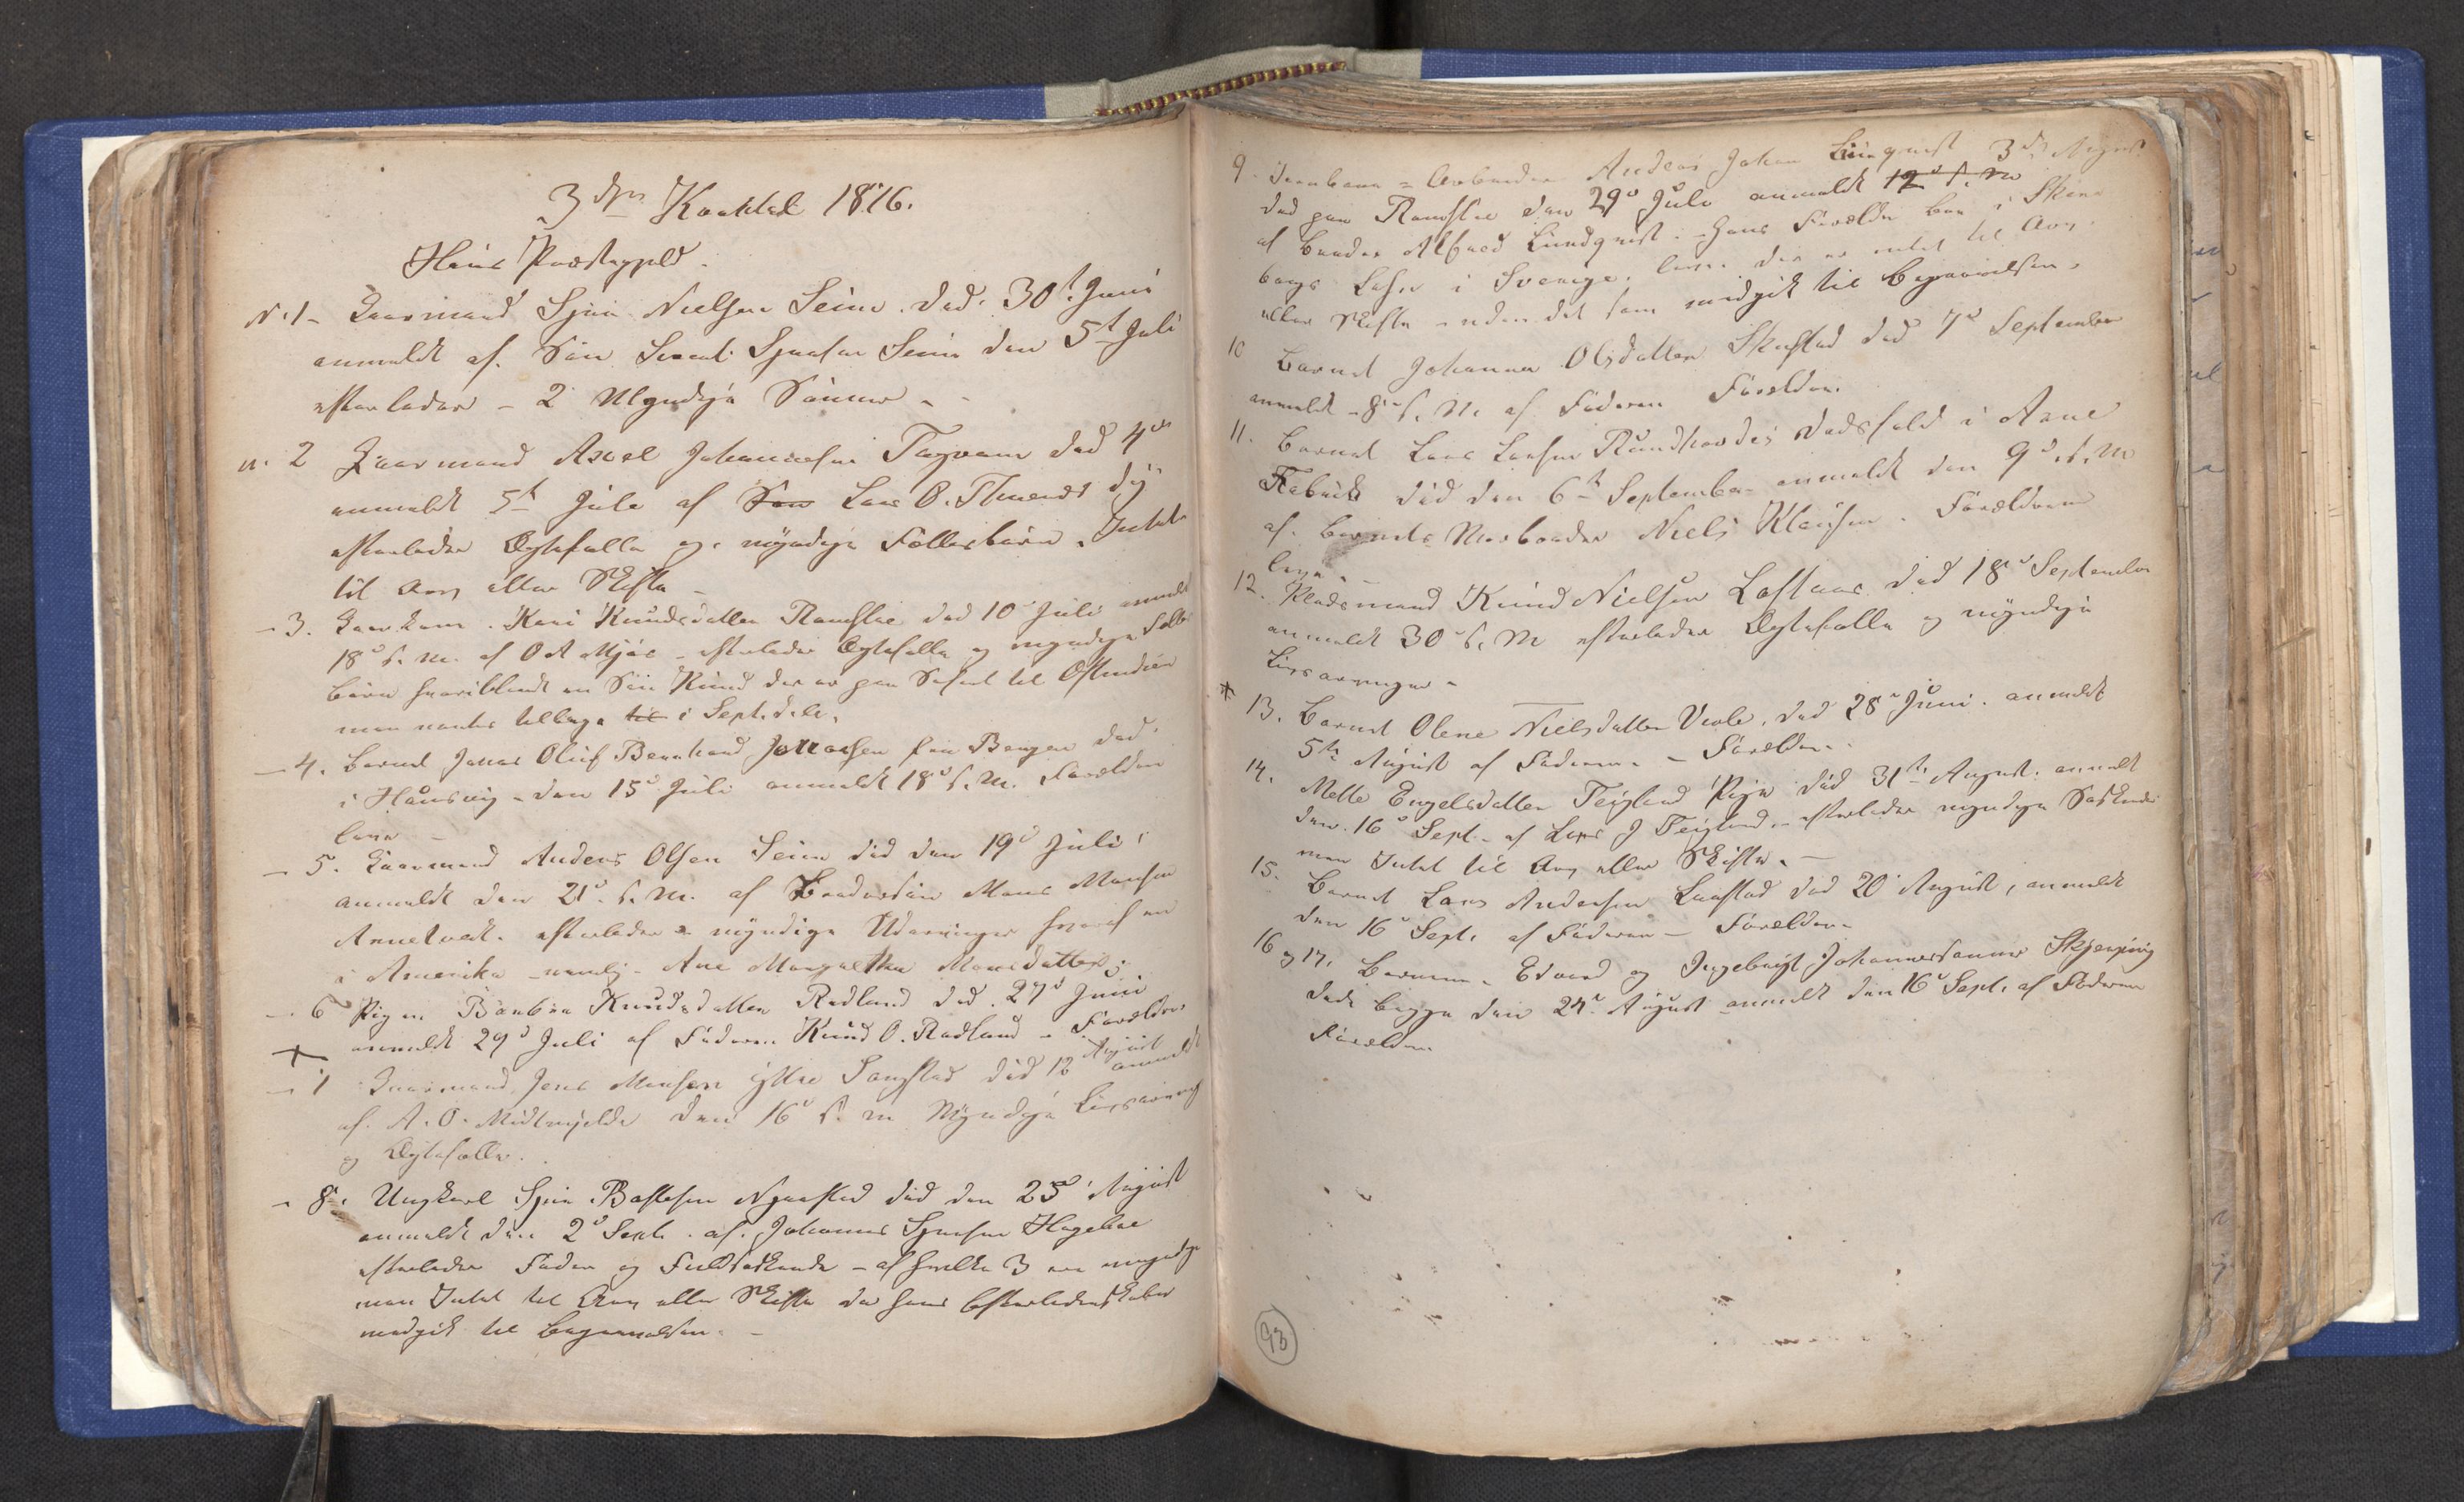 3die Kvartal 1876.
Haus Præstegjeld.
N. 1 - Kaarmand Sjur Nielsen Seim. Død. 30t Juni
anmeldt af. Søn Sjursen Seim den 5t Juli
efterlader - 2 Myndige Sønner -
n. 2 Gaarmand Axel Johannesen Tagvam Død 4de
anmeldt 5t Juli af Søn Lars O. Thuenæs dy
efterlader Ægtefælle og myndige Fællesbørn. Intet
til Arv eller Skifte -
- 3. Kaarkone. Kari Knudsdatter Ramslie død 10d Juli anmeldt
18d s. M. af O A Mjøs - efterlader Ægtefælle og myndige Fælles
børn hvoriblandt en Søn Knud der er paa Søfart til Ostindien
men ventes tilbage til i Sept. d. A.
- 4. Barnet Jonas Oluf Bernhard Jonassen fra Bergen død.
i Hausvig - den 15d Juli anmeldt 18d s. M. Forældre
leve -
- 5. Kaarmand Anders Olsen Seim død den 19d Juli
anmeldt den 21d. s. M. af Brodersøn Mons Monsen
Annetvedt. efterlader myndige Udarvinger hvoraf en
i Amerika - nemlig - Ane Margrethe Monsdatter.
- 6 Pigen Barbra Knudsdatter Radland død. 27d Juni
anmeldt 29d Juli af Faderen Knud O. Radland - Forældre.
+
- 7 Gaarmand Jens Monsen ytre Songstad død 12 August anmeldt
af. A. O. Midtmjelde den 16d s. M Myndige Livsarving
og Ægtefælle.
- 8. Ungkarl Sjur Baslesen Njaastad død den 25d August
anmeldt den 2d Sept. af. Johannes Sjursen Hagebøe
efterlader Fader og Fuldsøskende - af hvilke 3 ere umyndige
men Intet til Arv eller Skifte da hans Efterladenskaber
medgik til Begravelsen. -
9. Jernbane = Arbeider Anders Johan Lundqvist 3die August
død paa Ramslie den 29d Juli anmeldt 12d s. M
af Broder Alfred Lundqvist. - Hans Forældre bor i Skara
borgs Lehn i Sverige. der er intet til Arv.
eller Skifte - uden det som medgik til Begravelsen.
10 Barnet Johanna Olsdatter Skastad død 7d September
anmeldt - 8d s. M. af Faderen Forældre.
11. Barnet Lars Larsen Rundhovde, dødsfald i Arne
Fabrik død den 6te September - anmeldt den 9d. s. M
af. Barnets Morbroder Niels Klausen. Forældrene
leve. -
12. Pladsmand Knud Nielsen Loftaas død 18d September
anmeldt 30d s. M efterlader Ægtefælle og myndige
Livsarvinger -
+
13. Barnet Olene Nielsdatter Vevle. død 28d Juni. anmeldt
5te August af Faderen. - Forældre.
14. Mette Engelsdatter Teigland Pige død 31te August. anmeldt
den 16d Sept. - af Lars J Teigland. - efterlader myndige Søskende
men Intet til Arv eller Skifte. -
15. Barnet Lars Andersen Laastad død 20d August, anmeldt
den 16d Sept. af Faderen - Forældre.
16 og 17. Børnene. Edvard og Ingebrigt Johannessønner Skjerping
døde begge den 24d August anmeldt den 16d Sept. af Faderen
Forældre.
93